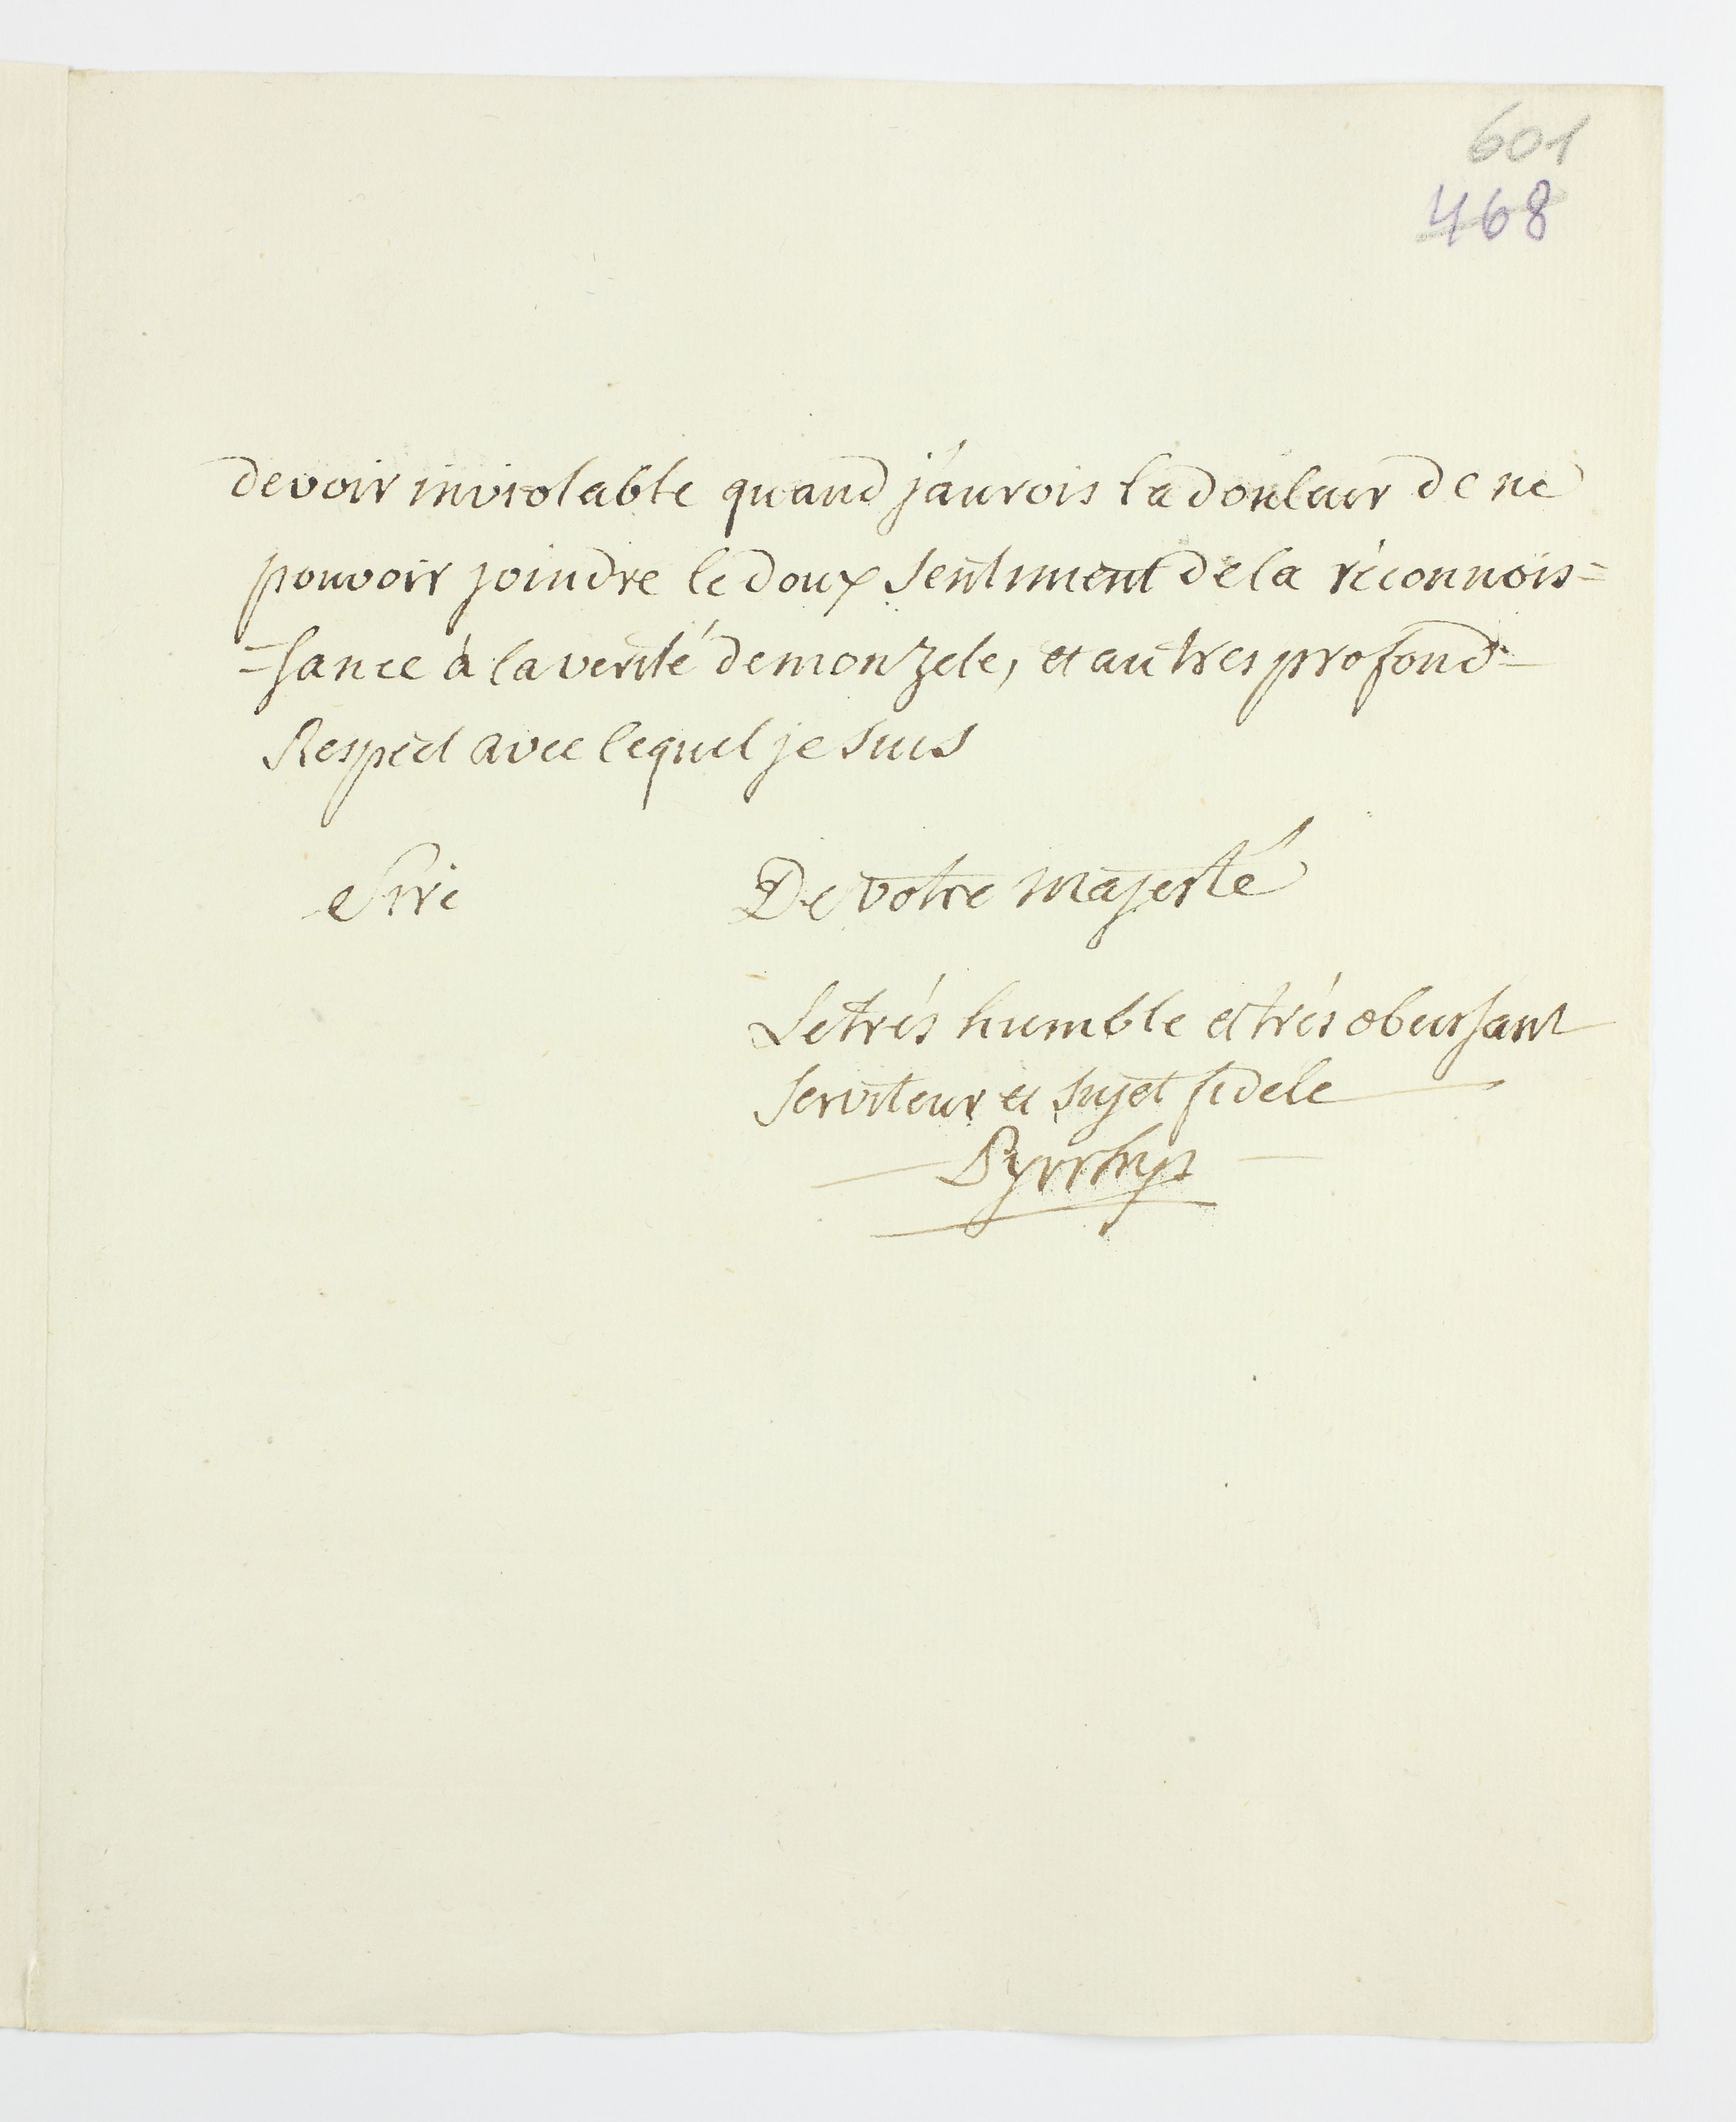 601
468
devoir inviolable quand j'aurois la douleur de ne
pouvoir joindre le doux sentiment de la réconnois=
=sance à la verité de mon zele, et au tres profond
Respect avec lequel je suis
Sire De votre majesté
Le trés humble et trés obeissant
serviteur et sujet fidele
Pyrrhys